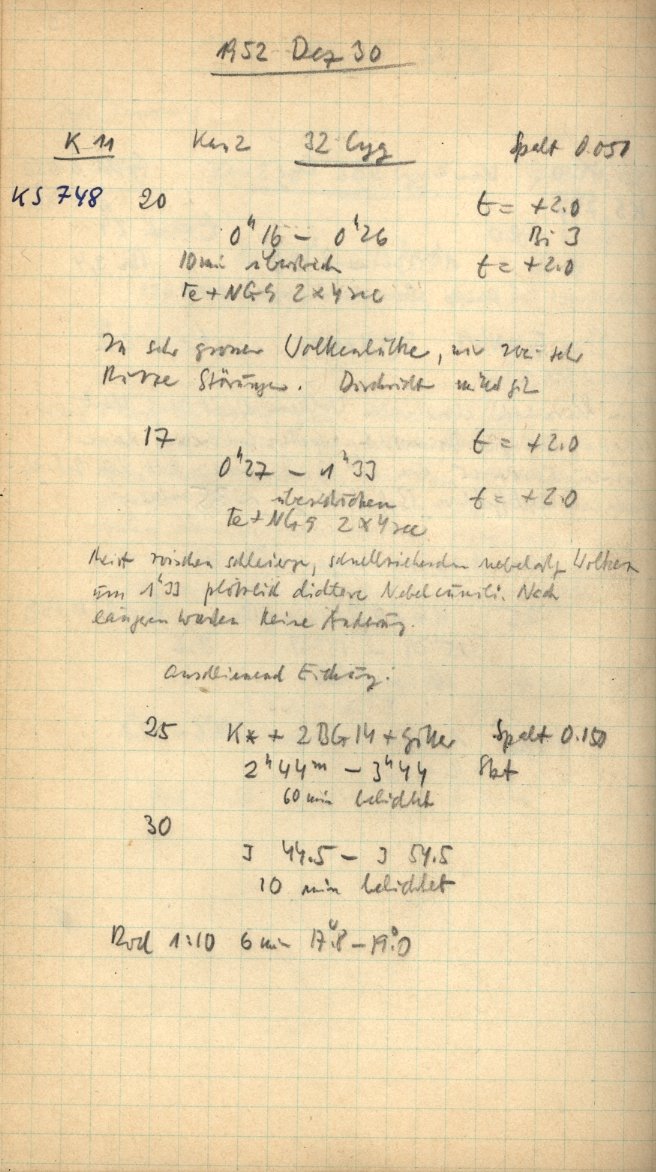 1952 Dez 30
K 11 Kas 2 32 Cyg Spalt 0.050
KS 748 20 t = +2.0
0ʰ16 – 0ʰ26 Bi 3
10 min überstrich t = +2.0
Te+NG9 2×4 sec
In sehr grosser Wolkenlücke, nur sehr
kurze Störungen. Durchsicht
17 t = +2.0
0ʰ27 – 1ʰ33
überstrichen t = +2.0
Te+NG9 2×4 sec
Meist zwischen schnellziehenden Wolken
um 1ʰ33 plötzlich dichtere Nach
längerem warten keine Änderung.
Anschliessend Eichung:
25 K* + 2BG14 + Gitter Spalt 0.150
2ʰ44ᵐ – 3ʰ44
60 min belichtet
30
3 44.5 – 3 54.5
10 min belichtet
Rod 1:10 6 min 17.°8 – 19.°0